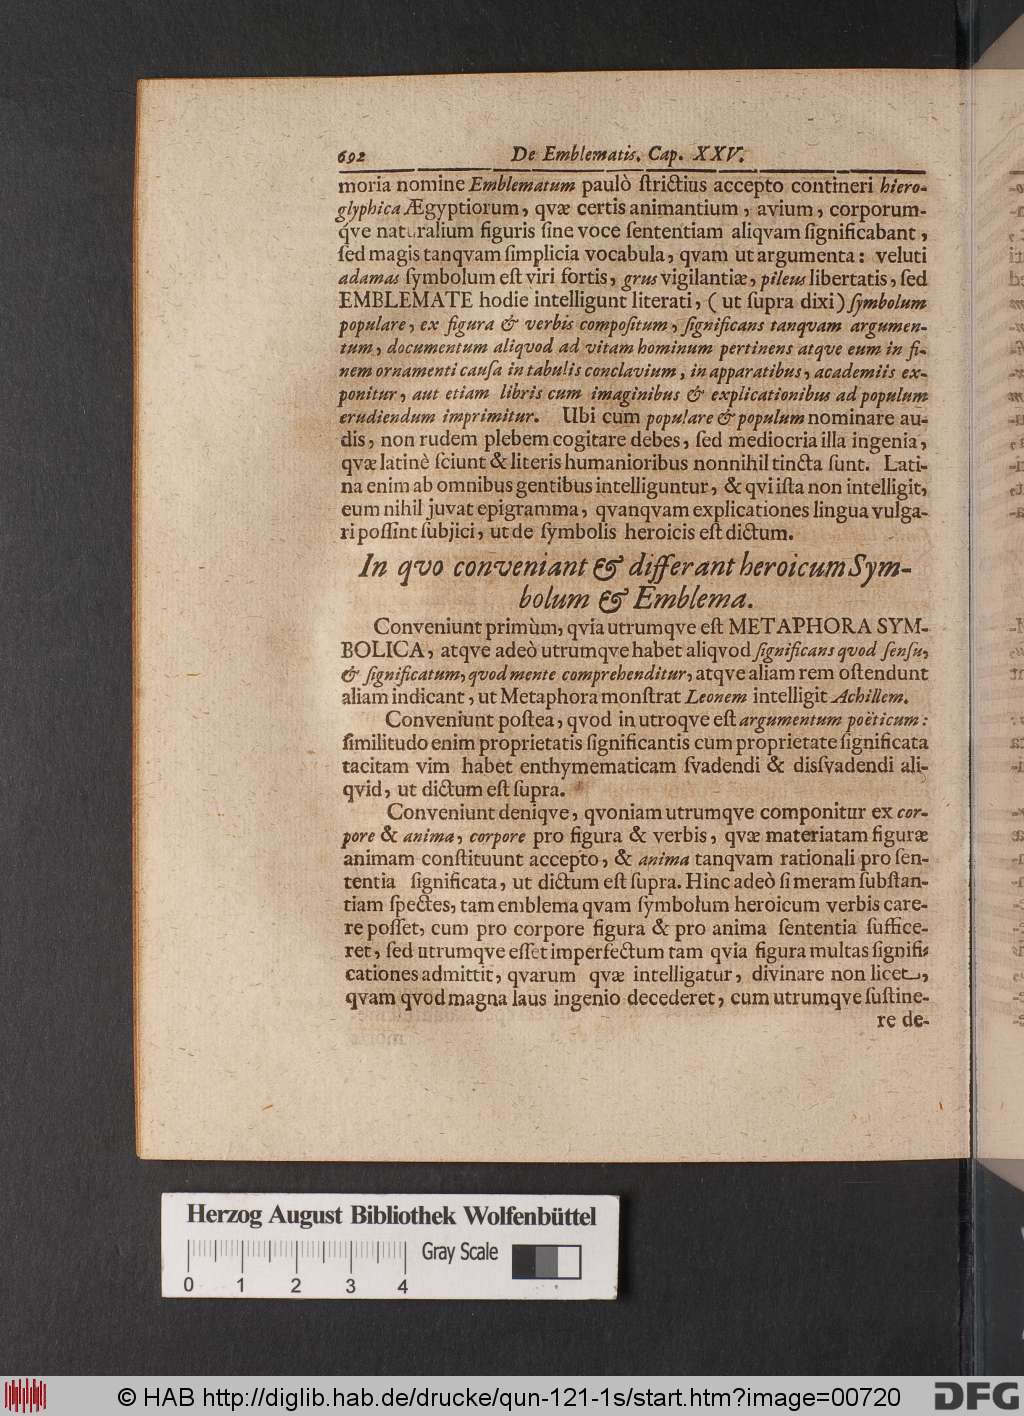 692 De Emblematis. Cap. XXV.
moria nomine Emblematum paulò ſtrictius accepto contineri hiero-
glyphica Ægyptiorum, qvæ certis animantium, avium, corporum-
q́ve naturalium figuris ſine voce ſententiam aliqvam ſignificabant,
ſed magis tanqvam ſimplicia vocabula, qvam ut argumenta: veluti
adamas ſymbolum eſt viri fortis, grus vigilantiæ, pileus libertatis, ſed
EMBLEMATE hodie intelligunt literati, (ut ſupra dixi) ſymbolum
populare, ex figura & verbis compoſitum, ſignificans tanqvam argumen-
tum, documentum aliqvod ad vitam hominum pertinens atqve eum in fi-
nem ornamenti cauſa in tabulis conclavium, in apparatibus, academiis ex-
ponitur, aut etiam libris cum imaginibus & explicationibus ad populum
erudiendum imprimitur. Ubi cum populare & populum nominare au-
dis, non rudem plebem cogitare debes, ſed mediocria illa ingenia,
qvæ latinè ſciunt & literis humanioribus nonnihil tincta ſunt. Lati-
na enim ab omnibus gentibus intelliguntur, & qvi iſta non intelligit,
eum nihil juvat epigramma, qvanqvam explicationes lingua vulga-
ri poſſint ſubjici, ut de ſymbolis heroicis eſt dictum.
In qvo conveniant & differant heroicum Sym-
bolum & Emblema.
Conveniunt primùm, qvia utrumqve eſt METAPHORA SYM-
BOLICA, atqve adeò utrumqve habet aliqvod ſignificans qvod ſenſu,
& ſignificatum, qvod mente comprehenditur, atqve aliam rem oſtendunt
aliam indicant, ut Metaphora monſtrat Leonem intelligit Achillem.
Conveniunt poſtea, qvod in utroqve eſt argumentum poëticum:
ſimilitudo enim proprietatis ſignificantis cum proprietate ſignificata
tacitam vim habet enthymematicam ſvadendi & disſvadendi ali-
qvid, ut dictum eſt ſupra.
Conveniunt deniqve, qvoniam utrumqve componitur ex cor-
pore & anima, corpore pro figura & verbis, qvæ materiatam figuræ
animam conſtituunt accepto, & anima tanqvam rationali pro ſen-
tentia ſignificata, ut dictum eſt ſupra. Hinc adeò ſi meram ſubſtan-
tiam ſpectes, tam emblema qvam ſymbolum heroicum verbis care-
re poſſet, cum pro corpore figura & pro anima ſententia ſuffice-
ret, ſed utrumqve eſſet imperfectum tam qvia figura multas ſignifi-
cationes admittit, qvarum qvæ intelligatur, divinare non licet,
qvam qvod magna laus ingenio decederet, cum utrumqve ſuſtine-
re de-
Herzog August Bibliothek Wolfenbüttel
Gray Scale
0 1 2 3 4
© HAB http://diglib.hab.de/drucke/qun-121-1s/start.htm?image=00720
DFG